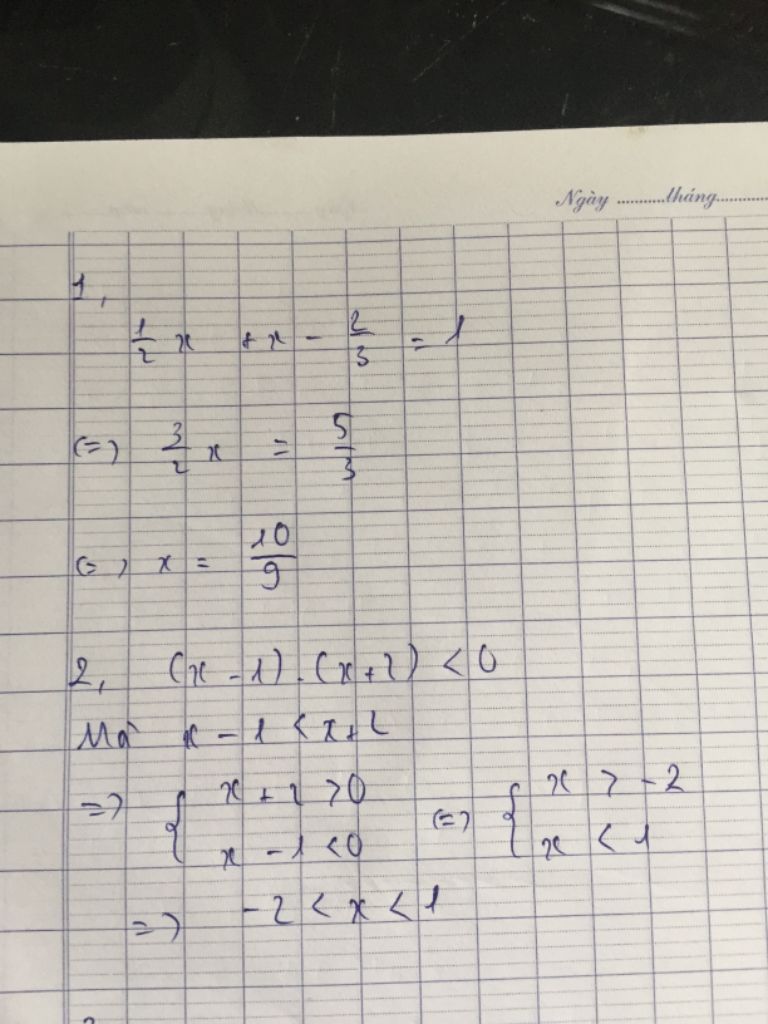 Ngày ...........tháng...........
1,
1/2 x + x - 2/3 = 1
(=) 3/2 x = 5/3
(=) x = 10/9
2, (x - 1) . (x + 2) < 0
Mà x - 1 < x + 2
=> { x + 2 > 0 (=) { x > -2
x - 1 < 0 x < 1
=> -2 < x < 1